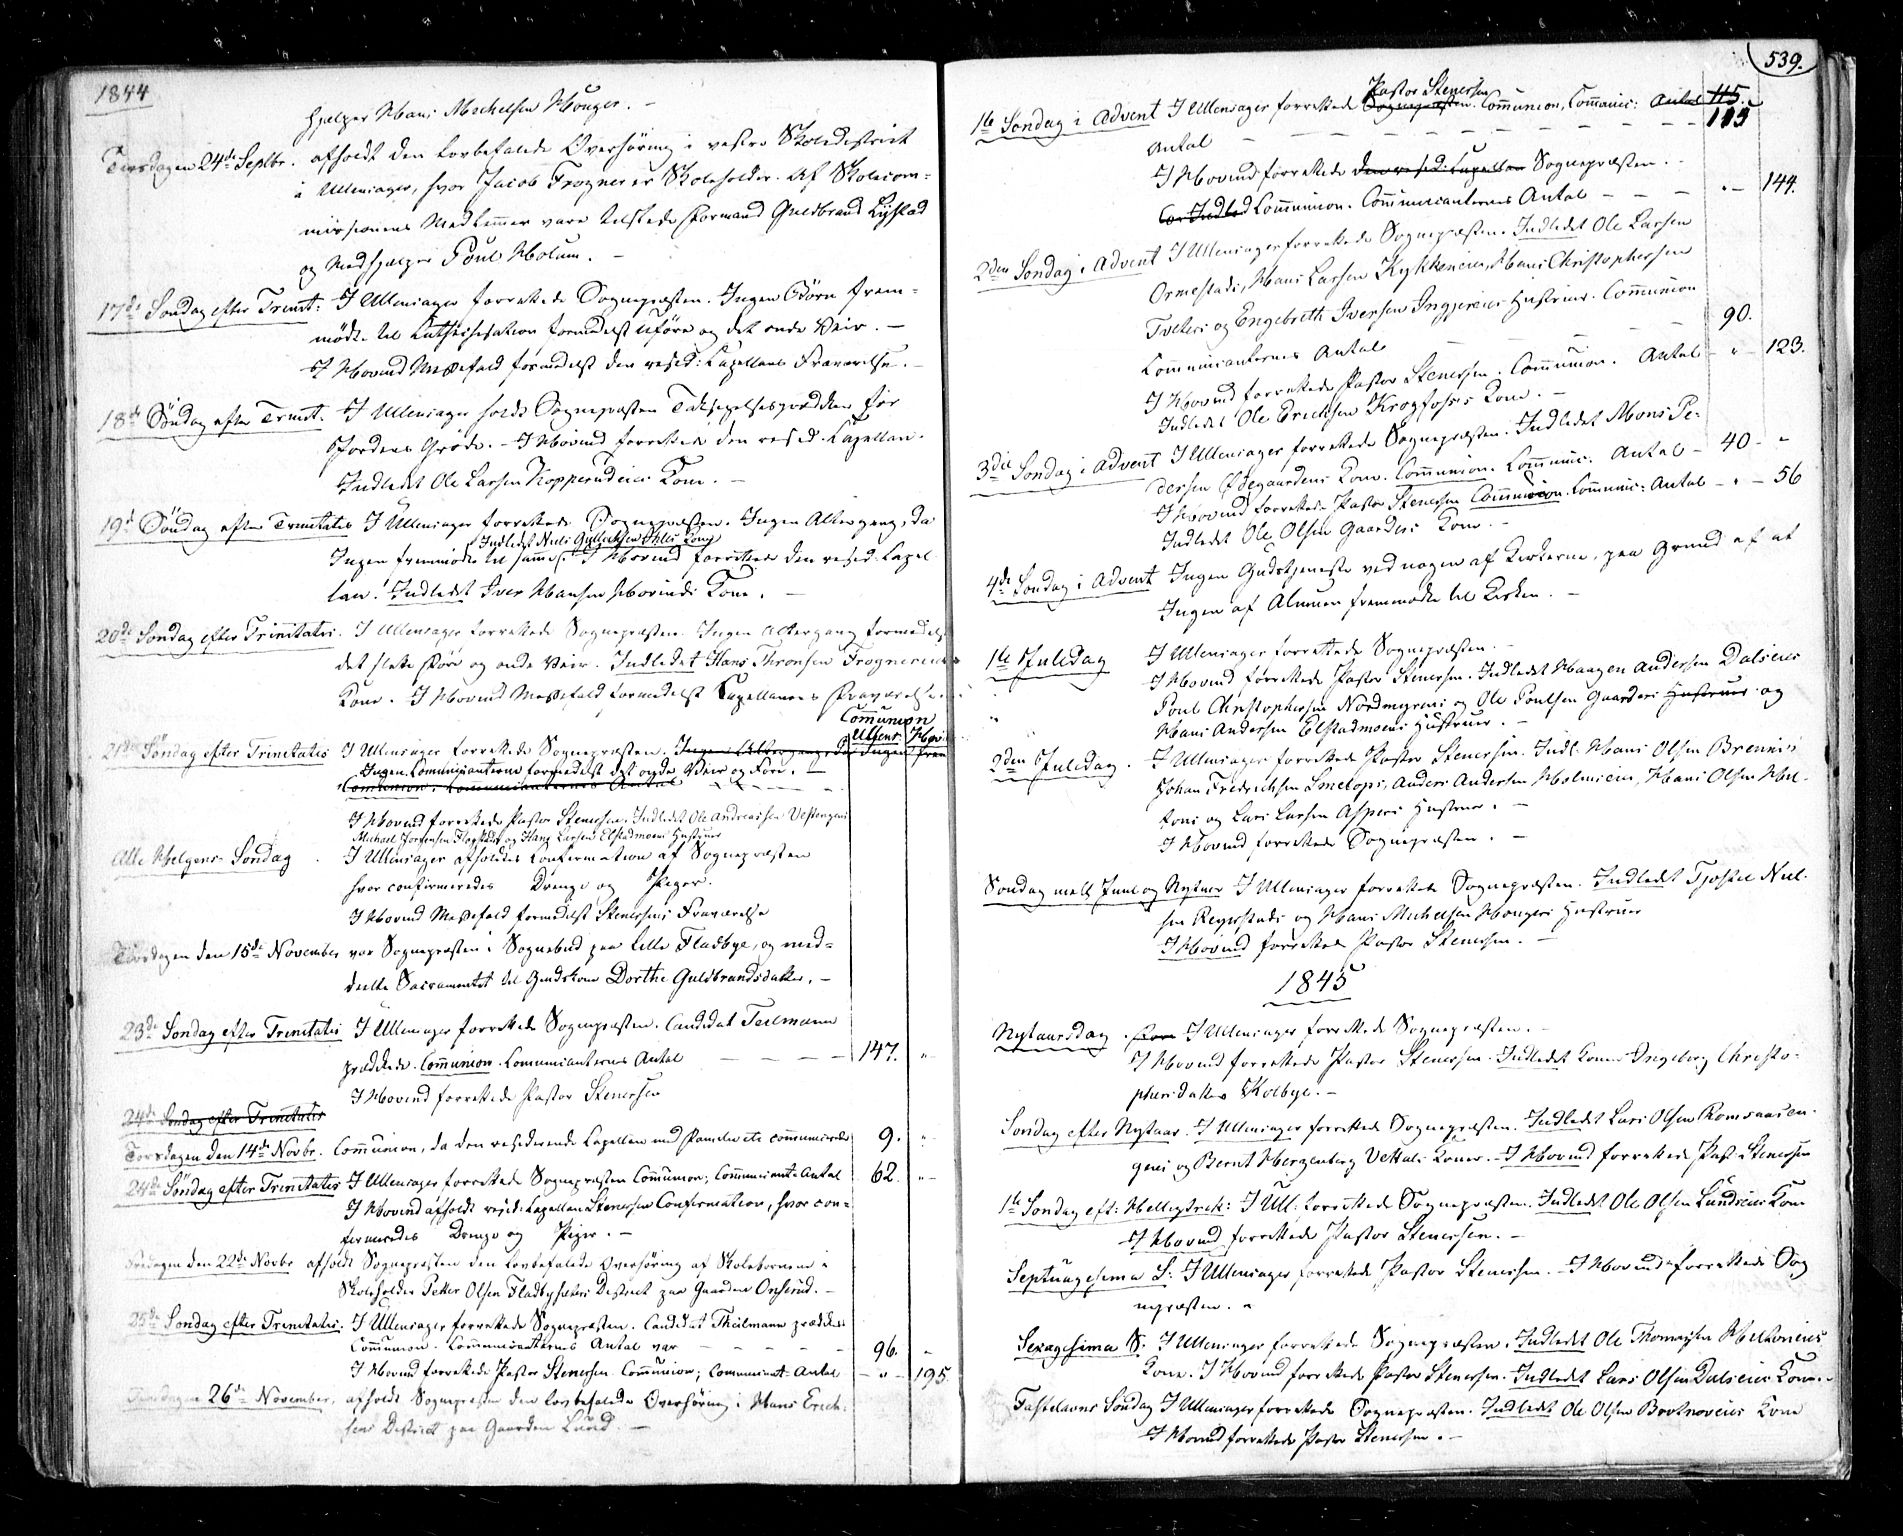 1844
hjelper Hans Mechelsen Houger. —
Tirsdagen 24de Septbr. afholdt den lovbefalede Overhøring i vestre Skoledistrict
i Ullensager, hvor Jacob Frogner er Skoleholder. Af Skolecom=
missionens Medlemmer vare tilstede Formand Guldbrand Lystad
og Medhjælper Poul Holum. —
17de Søndag efter Trinit: I Ullensager forrettede Sognepræsten. Ingen Børn frem=
mødte til Cathechisation formedelst Uføre og det onde Veir. —
I Hovind Messefald formedelst den resid: Capellans Fraværelse. —
18de Søndag efter Trinit. I Ullensager holdt Sognepræsten Taksigelsesprædiken for
Jordens Grøde. — I Hovind forrettede den resid. Capellan.
Indledet Ole Larsen Kopperudeies Kone. —
19de Søndag efter Trinitatis I Ullensager forrettede Sognepræsten. Ingen Altergang, da
Indledet Niels Gulliksen Kone
Ingen fremmødte til samme. I Hovind forrettede den resid. Capel
lan. Indledet Iver Hansen Hovinds Kone. —
20de Søndag efter Trinitatis. I Ullensager forrettede Sognepræsten. Ingen Altergang formedelst
det slette Føre og onde Veir. Indledet Hans Thronsen Frognereiets
Kone. I Hovind Messefald formedelst Capellanens Fraværelse.
Communion
Ullens. Hov:
21de Søndag efter Trinitatis I Ullensager forrettede Sognepræsten. Ingen Altergang da Ingen frem
Ingen Communicanterne formedelst det onde Veir og Føre. —
Communion. Communicanternes Antal
I Hovind forrettede Pastor Stenersen. Indledet Ole Andreassen Vestengens
Michael Jørgensen Flagstad og Hans Larsen Elstadmoens Hustruer
Alle Helgens Søndag I Ullensager afholdtes Confirmation af Sognepræsten
hvor confirmeredes Drenge og Piger.
I Hovind Messefald formedelst Stenersens Fraværelse
Torsdagen den 15de November var Sognepræsten i Sognebud paa Lille Fladbye, og med=
deelte Sacramentet til Dorthe Guldbrandsdatter. —
23de Søndag efter Trinitatis I Ullensager forrettede Sognepræsten. Candidat Teilmann
prædikede. Communion. Communicanternes Antal — — — — 147. "
I Hovind forrettede Pastor Stenersen
24de Søndag efter Trinitatis
Torsdagen den 14de Novbr. Communion, da den residerende Capellan med Familie communicerede 9. "
24de Søndag efter Trinitatis I Ullensager forrettede Sognepræsten Communion; Communicant: Antal 62. "
I Hovind afholdt resid: Capellan Stenersen Confirmation, hvor con=
firmeredes Drenge og Piger. —
Fredagen den 22de Novbr afholdt Sognepræsten den lovbefalede Overhøring af Skolebørnene i
Skoleholder Petter Olsen Fladbyseters District paa Gaarden Onsrud. —
25de Søndag efter Trinitatis. I Ullensager forrettede Sognepræsten. Candidat Theilmann prædikede
Communion. Communicanternes Antal var — — — — 96. "
I Hovind forrettede Pastor Stenersen. Communion; Communicant: Antal — " — 195
Tirsdagen 26de November, afholdt Sognepræsten den lovbefalede Overhøring i Hans Erich=
sens District paa Gaarden Lund. —
539.
Pastor Stenersen
1ste Søndag i Advent I Ullensager forrettede Sognepræsten. Communion, Communic: Antal 115.
Antal — — — — — — — — — 115
I Hovind forrettede den resid: Capellan Sognepræsten. —
Communion. Communicanternes Antal — — — " — 144.
2den Søndag i Advent I Ullensager forrettede Sognepræsten. Indledet Ole Larsen
Ormestads, Hans Larsen Kykkeneies, Hans Christophersen
Tveters og Engebreth Iversen Hustruer. Communion
Communicanternes Antal — — — — 90.
I Hovind forrettede Pastor Stenersen. Communion. Antal — " — 123.
Indledet Ole Erichsen Krogfosses Kone. —
3die Søndag i Advent I Ullensager forrettede Sognepræsten. Indledet Mons Pe=
dersen Ødegaardens Kone. Communion. Communic. Antal — 40 — "
I Hovind forrettede Pastor Stenersen Communion. Communic: Antal — " — 56
Indledet Ole Olsen Gaarders Kone. —
4de Søndag i Advent Ingen Gudstjeneste ved nogen af Kirkerne, paa Grund af at
Ingen af Almuen fremmødte til Kirken. —
1ste Juledag I Ullensager forrettede Sognepræsten. —
" I Hovind forrettede Pastor Stenersen. Indledet Haagen Andersen Dalseies
" Poul Christophersen Nordmyrens og Ole Poulsen Gaarders Hustruer og
Hans Andersen Elstadmoens Hustruer. —
2den Juledag. I Ullensager forrettede Pastor Stenersen. Indl: Hans Olsen Brennis
Johan Fredrichsen Smetops, Anders Andersen Holmseies, Hans Olsen Hel=
tons og Lars Larsen Aspers Hustruer. —
I Hovind forrettede Sognepræsten. —
Søndag mell Juul og Nytaar I Ullensager forrettede Sognepræsten. Indledet Tjøstel Niel=
sen Reyerstads og Hans Michelsen Hougers Hustruer
I Hovind forrettede Pastor Stenersen. —
1845
Nytaarsdag. For I Ullensager forrettede Sognepræsten. —
I Hovind forrettede Pastor Stenersen. Indledet Konen Ingeborg Christo=
phersdatter Kolbye. —
Søndag efter Nytaar. I Ullensager forrettede Sognepræsten. Indledet Lars Olsen Romsaasen=
geies og Bernt Hergenberg Vettals Koner. — I Hovind forrettede Past: Stenersen
1ste Søndag eft: Helligtrek: I Ull: forrettede Sognepræsten. Indledet Ole Olsen Lundseies Kone
I Hovind forrettede Pastor Stenersen. —
Septuagesima S: I Ullensager forrettede Pastor Stenersen. — I Hovind forrettede Sog
nepræsten. "
Sexagesima S. I Ullensager forrettede Sognepræsten. Indledet Ole Thomessen Heltoneies
Kone. I Hovind forrettede Pastor Stenersen. Indledet Lars Olsen Dalseies Kone. —
Fastelavns Søndag I Ullensager forrettede Sognepræsten. Indledet Ole Olsen Kone
I Hovind forrettede Pastor Stenersen. —